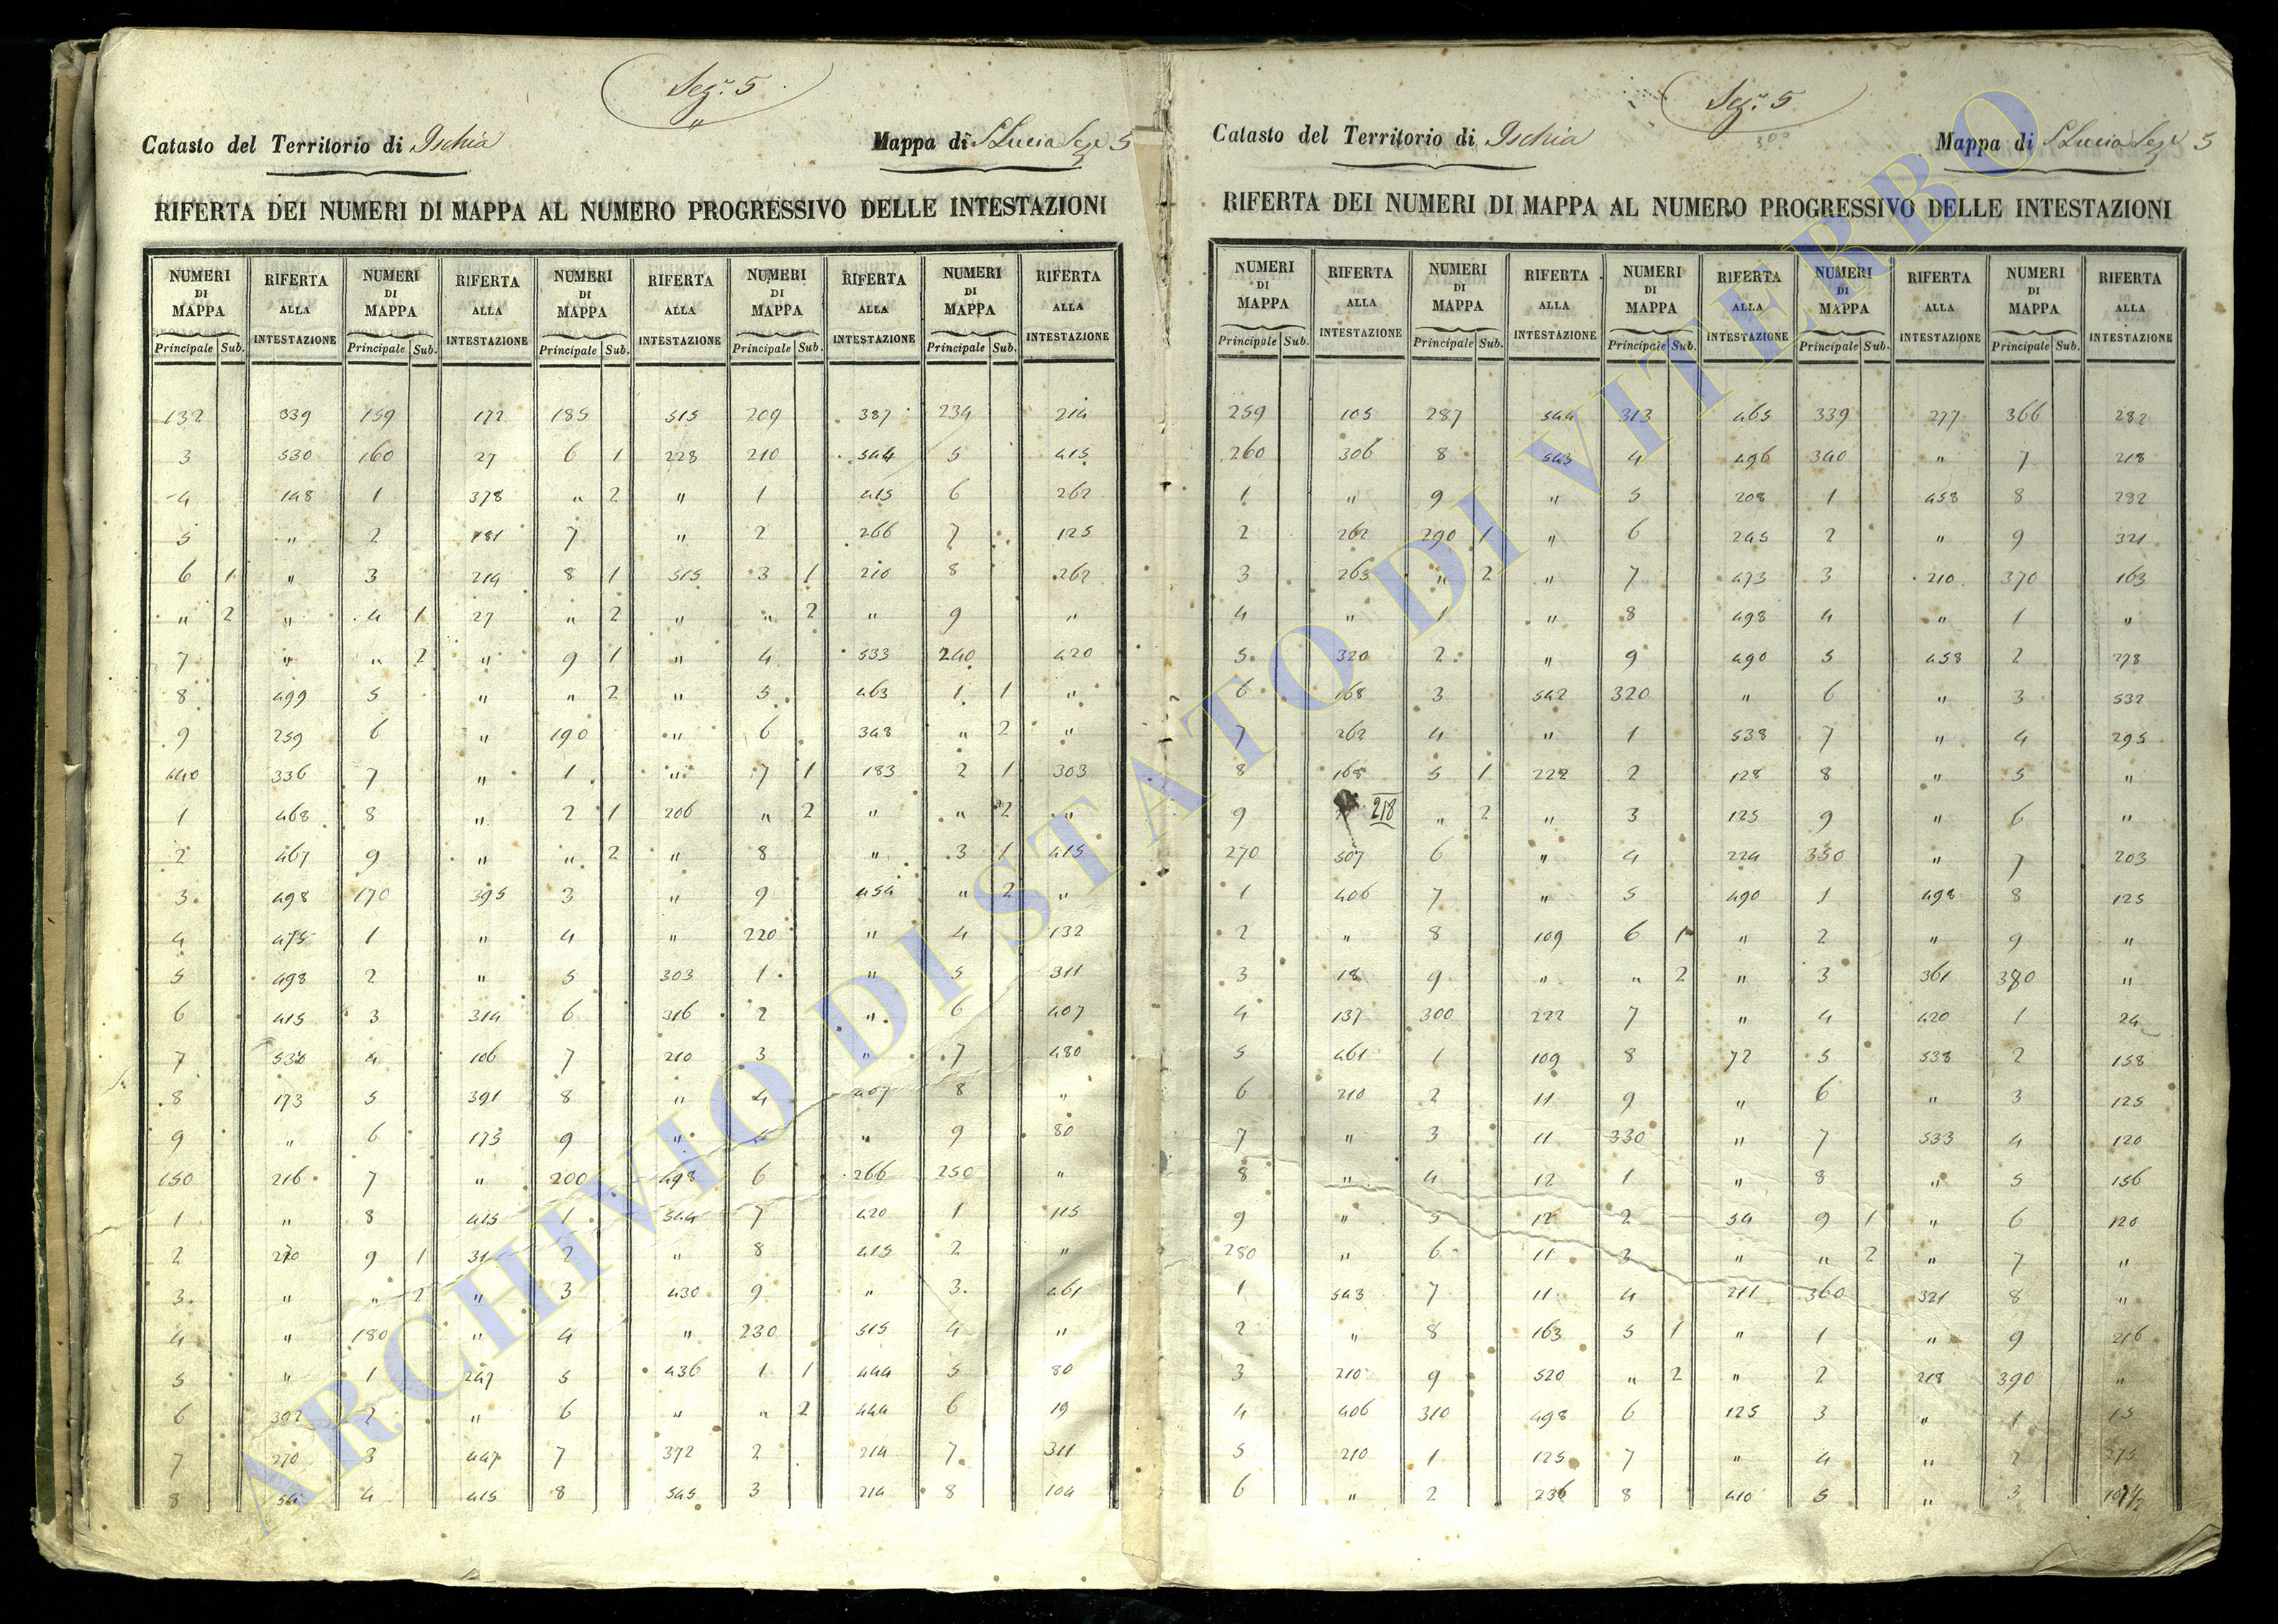 Sez.e 5
Catasto del Territorio di Ischia
Mappa di S Lucia Sez 5
RIFERTA DEI NUMERI DI MAPPA AL NUMERO PROGRESSIVO DELLE INTESTAZIONI
NUMERI RIFERTA NUMERI RIFERTA NUMERI RIFERTA NUMERI RIFERTA NUMERI RIFERTA
DI ALLA DI ALLA DI ALLA DI ALLA DI ALLA
MAPPA INTESTAZIONE MAPPA INTESTAZIONE MAPPA INTESTAZIONE MAPPA INTESTAZIONE MAPPA INTESTAZIONE
Principale Sub. Principale Sub. Principale Sub. Principale Sub. Principale Sub.
132 339 159 172 185 515 209 387 234 214
3 530 160 27 6 1 228 210 544 5 415
4 148 1 378 " 2 " 1 415 6 262
5 " 2 181 7 " 2 266 7 125
6 1 " 3 214 8 1 515 3 1 210 8 262
" 2 " 4 1 27 " 2 " " 2 " 9 "
7 " " 2 " 9 1 " 4 533 240 420
8 499 5 " " 2 " 5 463 1 1 "
9 259 6 " 190 " 6 348 " 2 "
140 336 7 " 1 " 7 1 183 2 1 303
1 468 8 " 2 1 206 " 2 " " 2 "
2 467 9 " " 2 " 8 " 3 1 415
3 498 170 395 3 " 9 454 " 2 "
4 475 1 " 4 " 220 " 4 132
5 498 2 " 5 303 1 " 5 311
6 415 3 314 6 316 2 " 6 407
7 4 106 7 210 3 " 7 480
8 173 5 391 8 " 4 407 8 "
9 " 6 175 9 " 5 " 9 80
150 216 7 " 200 498 6 266 250 "
1 " 8 415 1 544 7 420 1 115
2 9 1 31 2 " 8 415 2 "
3 " " 2 " 3 430 9 " 3 461
4 " 180 " 4 " 230 515 4 "
5 " 1 247 5 436 1 1 444 5 80
6 392 2 " 6 " " 2 444 6 19
7 270 3 447 7 372 2 214 7 311
8 54 4 415 8 545 3 214 8 104
Sez.e 5
300
Catasto del Territorio di Ischia
Mappa di S Lucia Sez 5
RIFERTA DEI NUMERI DI MAPPA AL NUMERO PROGRESSIVO DELLE INTESTAZIONI
NUMERI RIFERTA NUMERI RIFERTA NUMERI RIFERTA NUMERI RIFERTA NUMERI RIFERTA
DI ALLA DI ALLA DI ALLA DI ALLA DI ALLA
MAPPA INTESTAZIONE MAPPA INTESTAZIONE MAPPA INTESTAZIONE MAPPA INTESTAZIONE MAPPA INTESTAZIONE
Principale Sub. Principale Sub. Principale Sub. Principale Sub. Principale Sub.
259 105 287 544 313 465 339 277 366 282
260 306 8 543 4 496 340 " 7 218
1 " 9 " 5 208 1 458 8 282
2 262 290 1 " 6 245 2 " 9 321
3 263 " 2 " 7 473 3 210 370 163
4 " 1 " 8 498 4 " 1 "
5 320 2 " 9 490 5 458 2 278
6 168 3 542 320 " 6 " 3 532
7 262 4 " 1 538 7 " 4 295
8 168 5 1 222 2 128 8 " 5 "
9 218 " 2 " 3 125 9 " 6 "
270 507 6 " 4 224 350 " 7 203
1 406 7 " 5 490 1 498 8 125
2 " 8 109 6 1 " 2 " 9 "
3 18 9 " " 2 " 3 361 380 "
4 137 300 222 7 " 4 420 1 24
5 461 1 109 8 72 5 538 2 158
6 210 2 11 9 " 6 " 3 125
7 " 3 11 330 " 7 533 4 120
8 " 4 12 1 " 8 " 5 156
9 " 5 12 2 54 9 1 " 6 120
280 " 6 11 3 " " 2 " 7 "
1 543 7 11 4 211 360 321 8 "
2 " 8 163 5 1 " 1 " 9 216
3 210 9 520 " 2 " 2 218 390 "
4 406 310 498 6 125 3 " 1 15
5 210 1 125 7 " 4 " 2 275
6 " 2 236 8 410 5 " 3 107 1/2
ARCHIVIO DI STATO DI VITERBO